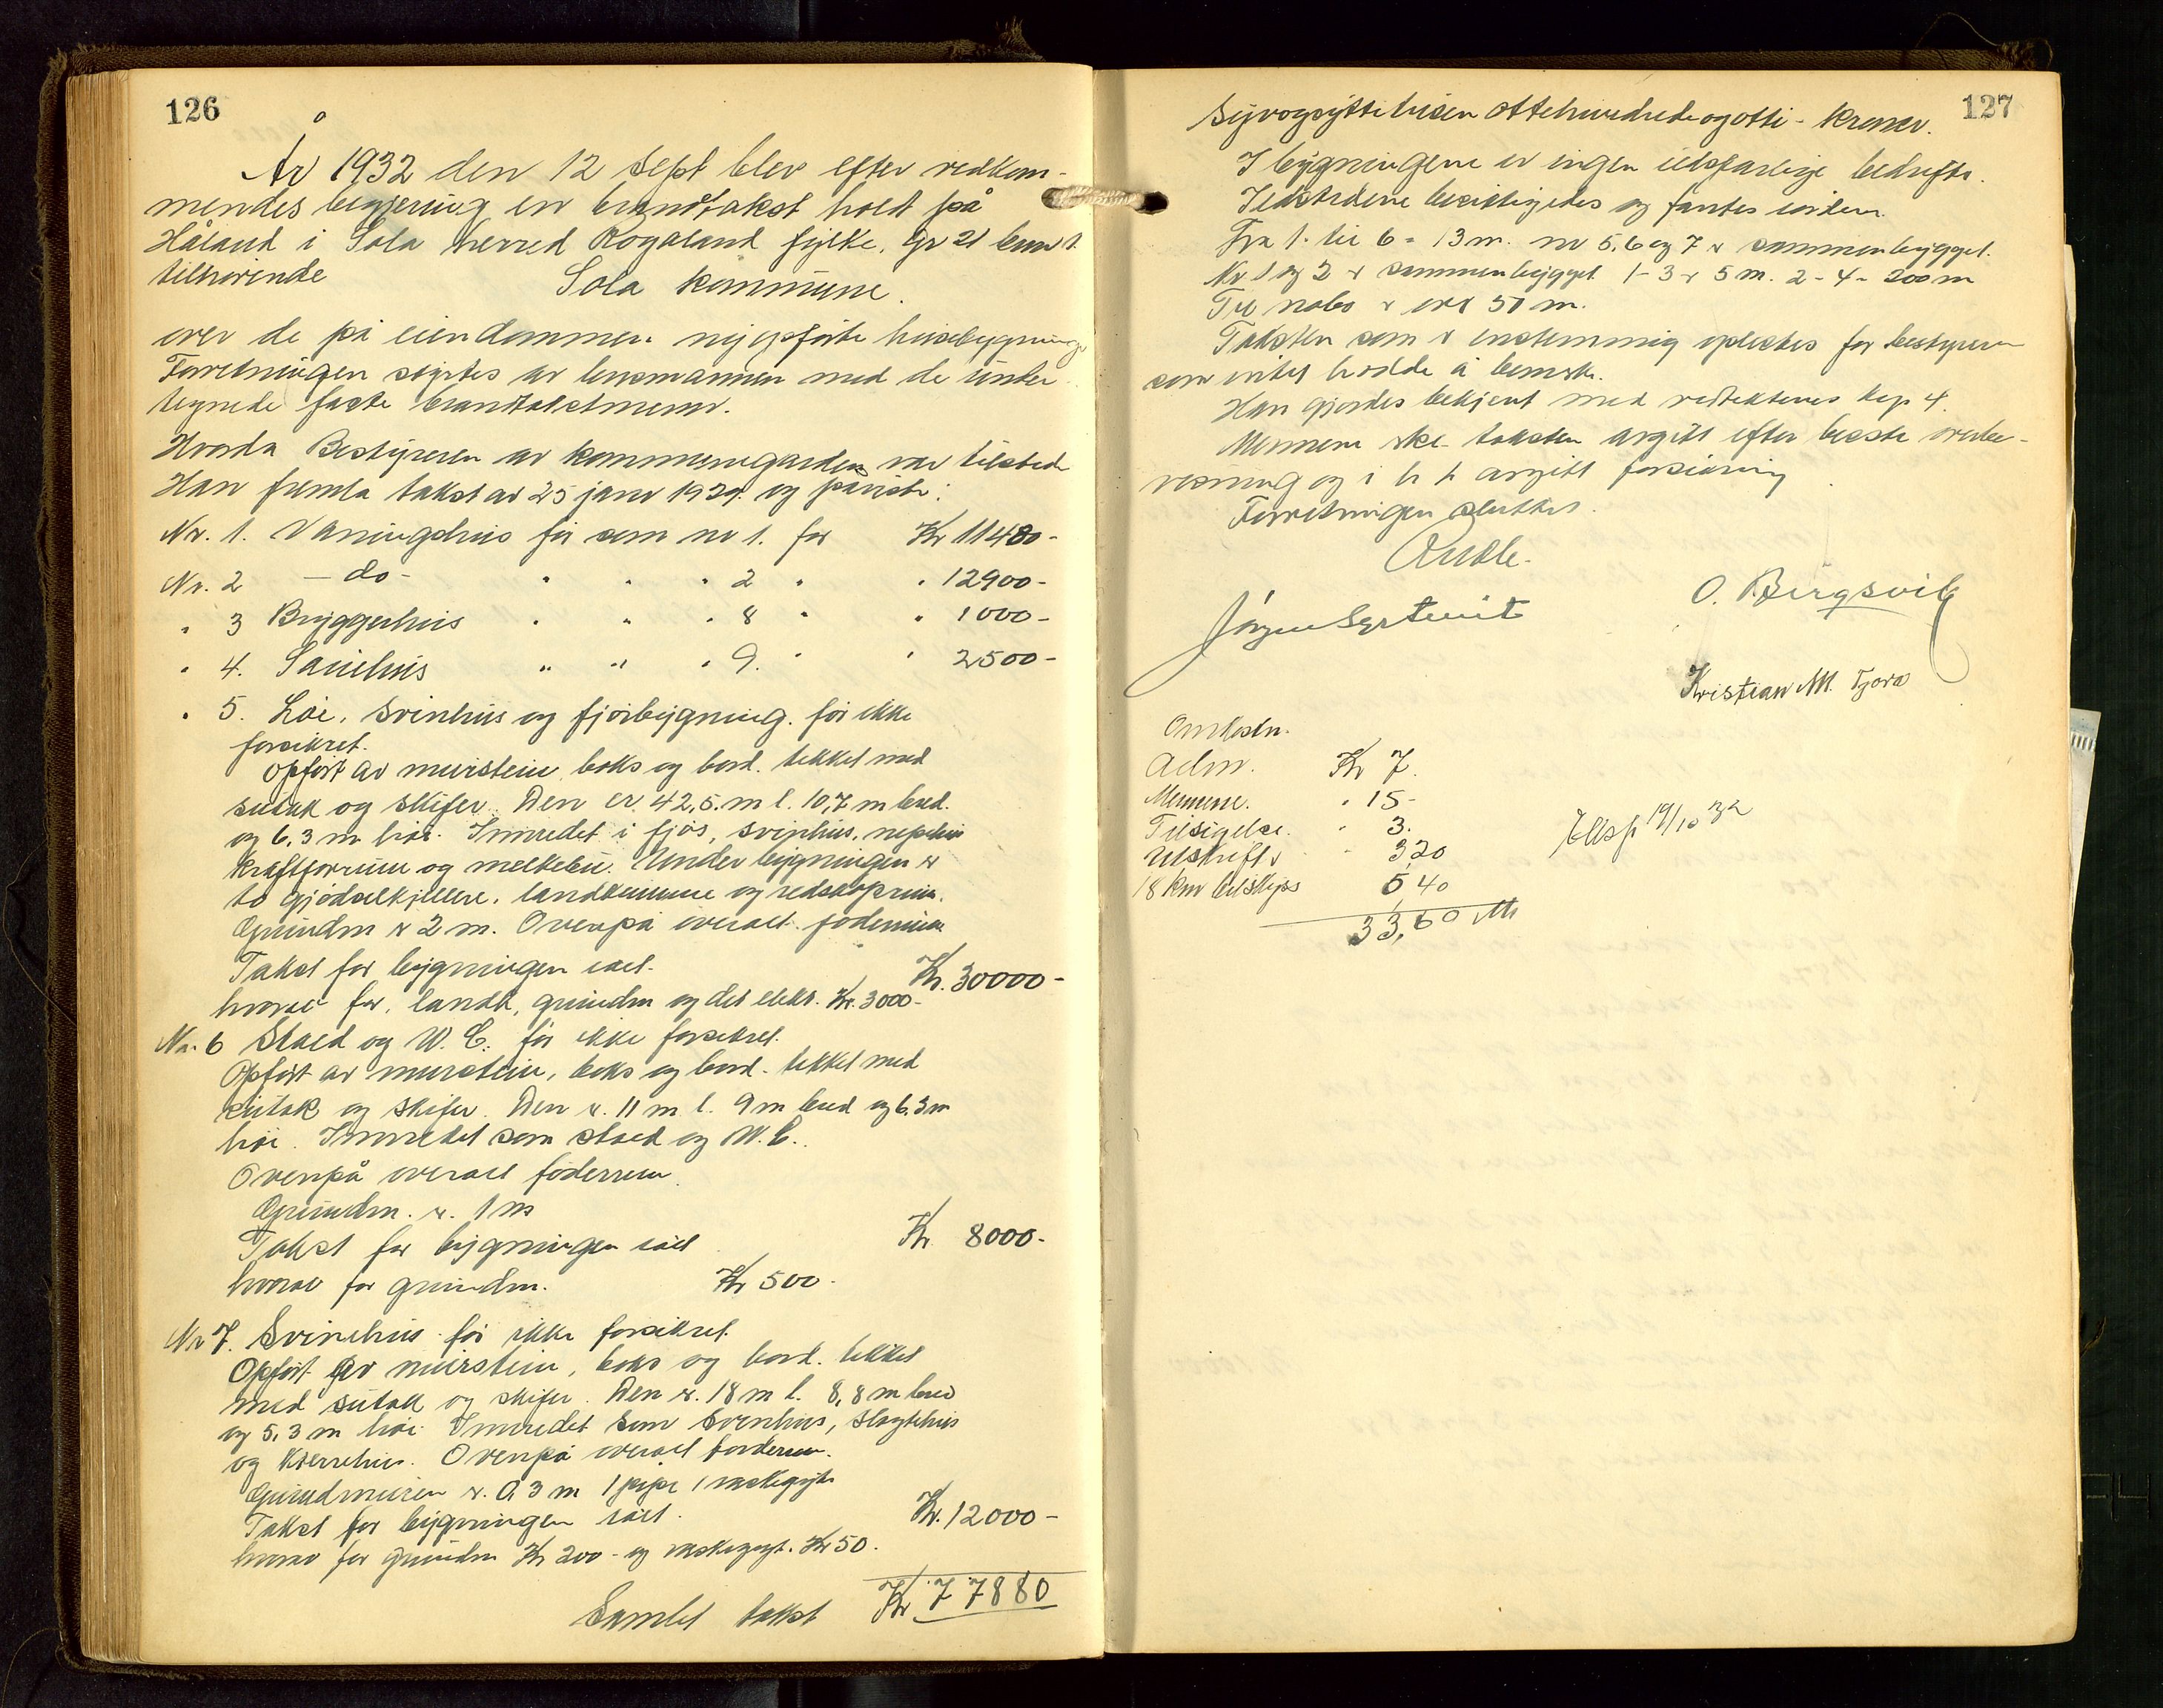 126
År 1932 den 12 Sept blev efter vedkom-
mendes begjering en brandtakst holdt på
Håland i Sola herred Rogaland fylke, Gr 21 brnr 1.
tilhørende Sola kommune.
over de på eiendommen nyopførte husebygninge
Forretningen styrtes av lensmannen med de under-
tegnede faste brandtakstmenn.
Hvorda Bestyreren av kommunegarden var tilstede
Han fremla takst av 25 janr 1929. og påviste:
Nr. 1. Vaningshus før som nr 1. for Kr 11480-
Nr. 2 - do - " " " 2 " " 12900-
" 3 Bryggerhus " " " 8 " " 1000-
" 4. Sauehus " " " 9. " " 2500-
" 5. Løe, svinhus og fjøsbygning. før ikke
forsikret.
Opført av murstein, boks og bord. tekket med
sutak og skifer. Den er 42,5. m l. 10,7 m bred.
og 6,3 m høi. Innredet i fjøs, svinhus, nepehus
kraftforrum og melkebu. Under bygningen er
to gjødselkjellere, landkummue og redskaprum.
Grundm er 2 m. Ovenpå overalt foderrum
Takst for bygningen ialt. Kr. 30000-
hvorav for, landk, grundm og det elekr. Kr. 3000-
Nr. 6 Stald og W. C. før ikke forsikret.
Opført av murstein, boks og bord. tekket med
sutak og skifer. Den er. 11 m l. 9 m bred og 6.3 m
høi. Innredet som stald og W.C.
Ovenpå overalt foderrum.
Grundm. er. 1 m
Takst for bygningen ialt Kr 8000-
hvorav for grundm. Kr 500-
Nr 7. Svinehus før ikke forsikret.
Opført av murstein, boks og bord. tekket
med sutak og skifer. Den er. 18 m l. 8,8 m bred
og 5,3 m høi. Innredet som svinhus, slagtehus
og kjerrehus. Ovenpå overalt forderrum.
Grundmuren er. 0,3 m 1 pipe 1 vaskegryte
Takst for bygningen ialt. Kr. 12000-
hvorav for grundm Kr 200- og vaskegryt. Kr 50.
Samlet takst Kr 77880
127
Syvogsyttitusen ottehundredeogotti - kroner.
I bygningene er ingen ildsfarlige bedrifte.
Ildstedene besiktigedes og fantes iorden.
Fra 1. til 6 = 13 m. nr 5, 6 og 7 er sammenbygget.
Nr 1 og 2 er sammenbygget 1-3 er 5 m. 2-4 - 200 m
Til nabo er over 50 m.
Taksten som er enstemmig oplestes for bestyreren
som intet hadde å bemerke.
Han gjordes bekjent med vedtektenes kap 4.
Mennene har taksten avgitt efter beste overbe-
visning og i h t avgitt forsikring.
Forretningen sluttet.
O. Bergsvik
Kristian M. Tjora
Omkostn.
Adm. Kr 7.
Mennene. " 15-
Tilsigelse. " 3.
Utskrift " 3,20
18 km bilskyss 5,40
33,60
Utsf. 19/10 32